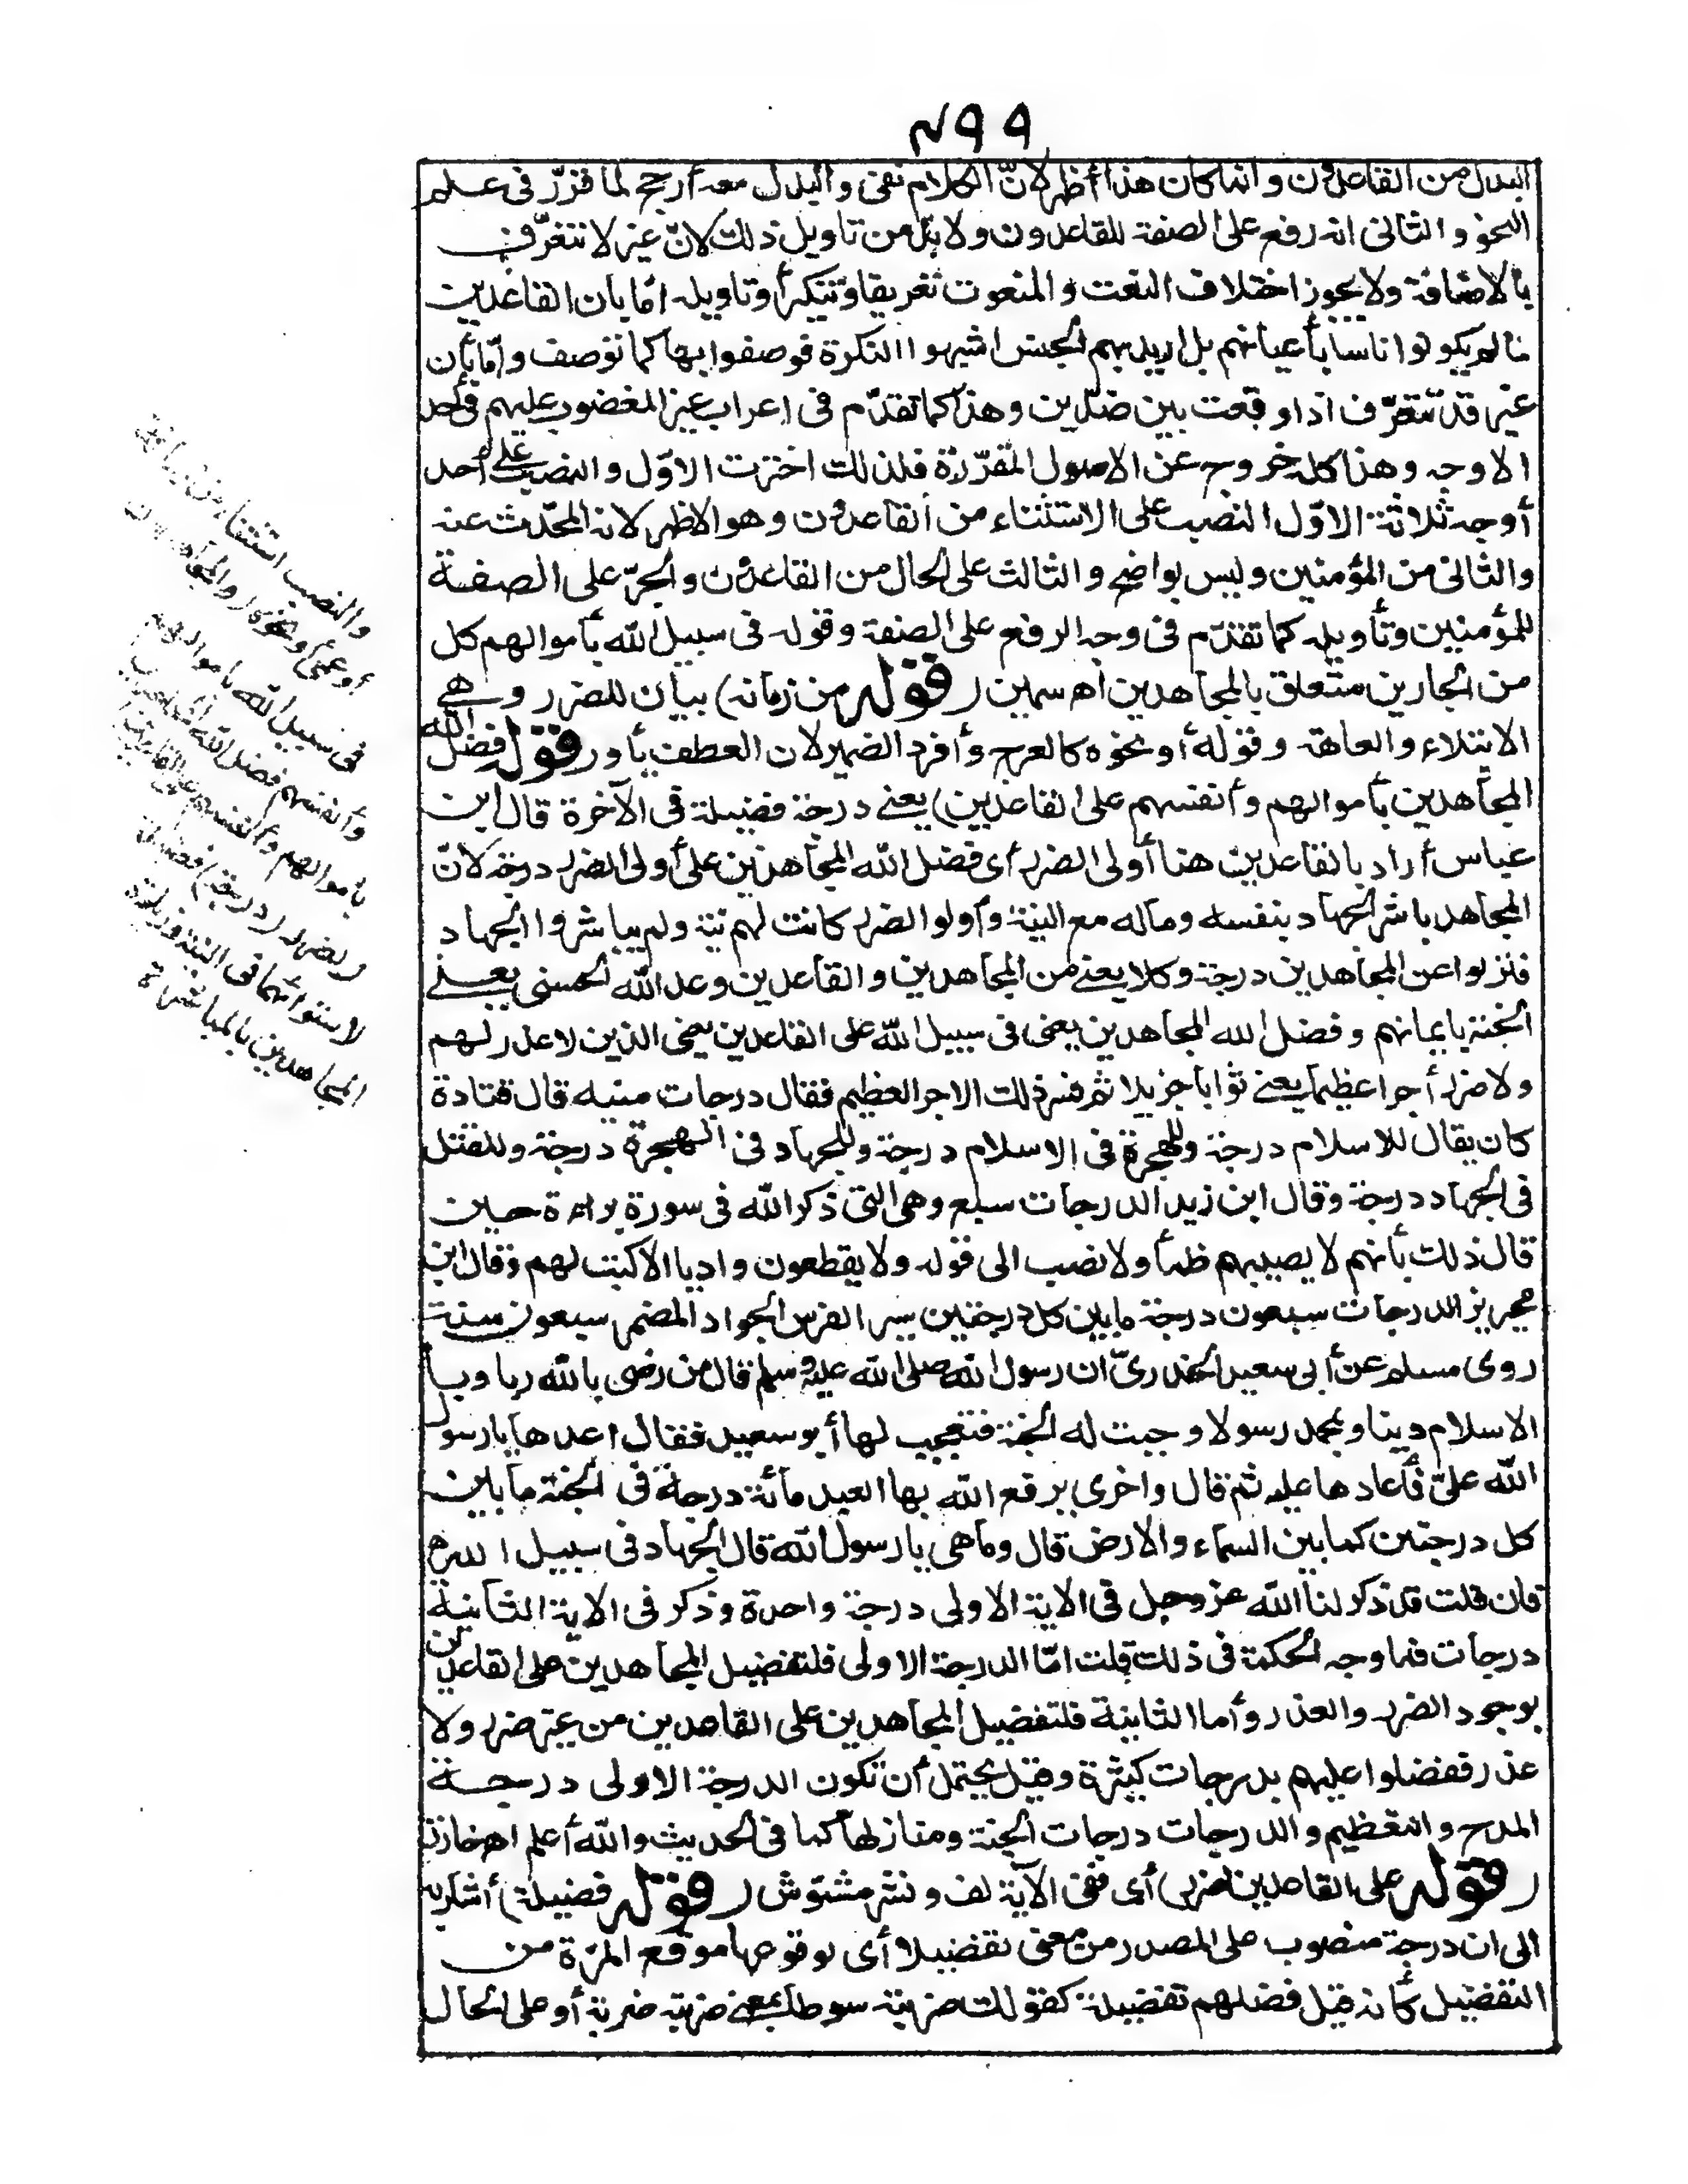 ٤٩٩
البدل من القاعدون وانما كان هذا أظهر لانّ الكلام نفى والبدل معه أرجح لما قرّر فى علم
النحو والثانى انه رفع على الصفة للقاعدون ولا بدّ من تاويل ذلك لانّ غير لا تتعرّف
بالاضافة ولا يجوز اختلاف النعت والمنعوت تعريفا وتنكيرا وتاويله امّا بان القاعدين
لما لم يكونوا ناسا بأعيانهم بل اريد بهم الجنس اشبهوا النكرة فوصفوا بها كما توصف وامّا بأن
غير قد تتعرّف اذا وقعت بين ضدّين وهذا كما تقدّم فى اعراب غير المغضوب عليهم فى أحد
الاوجه وهذا كله خروج عن الاصول المقرّرة فلذلك اخترت الاوّل والنصب على أحد
أوجه ثلاثة الاوّل النصب على الاستثناء من القاعدون وهو الاظهر لانه المحدّث عنه
والثانى من المؤمنين وليس بواضح والثالث على الحال من القاعدون والجرّ على الصفة
للمؤمنين وتأويله كما تقدّم فى وجه الرفع على الصفة وقوله فى سبيل الله بأموالهم كل
من الجارين متعلق بالمجاهدين اه سمين (قوله من زمانة) بيان للضرر وهى
الابتلاء والعاهة وقوله أو نحوه كالعرج وأفرد الضمير لان العطف بأو (قوله فضل الله
المجاهدين بأموالهم وأنفسهم على القاعدين) يعنى درجة فضيلة فى الآخرة قال ابن
عباس أراد بالقاعدين هنا أولى الضرر أى فضل الله المجاهدين على أولى الضرر درجة لانّ
المجاهد باشر الجهاد بنفسه وماله مع النية وأولوا الضرر كانت لهم نية ولم يباشروا الجهاد
فنزلوا عن المجاهدين درجة وكلا يعنى من المجاهدين والقاعدين وعد الله الحسنى يعنى
الجنة بايمانهم وفضل الله المجاهدين يعنى فى سبيل الله على القاعدين يعنى الذين لا عذر لهم
ولا ضرر أجرا عظيما يعنى ثوابا جزيلا ثم فسر ذلك الاجر العظيم فقال درجات منه قال قتادة
كان يقال للاسلام درجة وللهجرة فى الاسلام درجة وللجهاد فى الهجرة درجة وللقتل
فى الجهاد درجة وقال ابن زيد الدرجات سبع وهى التى ذكر الله فى سورة براءة حين
قال ذلك بأنهم لا يصيبهم ظمأ ولا نصب الى قوله ولا يقطعون واديا الا كتب لهم وقال ابن
محيريز الدرجات سبعون درجة ما بين كل درجتين سير الفرس الجواد المضمر سبعون سنة
روى مسلم عن أبى سعيد الخدرىّ ان رسول الله صلى الله عليه وسلم قال من رضى بالله ربا وبـ
الاسلام دينا وبمحمد رسولا وجبت له الجنة فتعجب لها أبو سعيد فقال اعدها يا رسول
الله علىّ فأعادها عليه ثم قال واخرى يرفع الله بها العبد مائة درجة فى الجنة ما بين
كل درجتين كما بين السماء والارض قال وما هى يا رسول الله قال الجهاد فى سبيل الله
فان قلت قد ذكر لنا الله عز وجل فى الاية الاولى درجة واحدة وذكر فى الاية الثانية
درجات فما وجه الحكمة فى ذلك قلت امّا الدرجة الاولى فلتفضيل المجاهدين على القاعدين
بوجود الضرر والعذر وأما الثانية فلتفضيل المجاهدين على القاعدين من غير ضرر ولا
عذر ففضلوا عليهم بدرجات كثيرة وقيل يحتمل أن تكون الدرجة الاولى درجة
المدح والتعظيم والدرجات درجات الجنة ومنازلها كما فى الحديث والله أعلم اه خازن
(قوله على القاعدين لضرر) أى ففى الآية لف ونشر مشوّش (قوله فضيلة) أشار به
الى ان درجة منصوب على المصدر من معنى تفضيلا أى لوقوعها موقع المرّة من
التفضيل كأنه قيل فضلهم تفضيلة كقولك ضربته سوطا بمعنى ضربته ضربة أو على الحال
والنصب استثناء من زمانة
أو عمى أو نحوه (والمجاهدون
فى سبيل الله بأموالهم
وأنفسهم فضل الله المجاهدين
بأموالهم وأنفسهم على القاعدين)
لضرر (درجة) فضيلة
لاستوائهما فى النية وزيادة
المجاهدين بالمباشرة